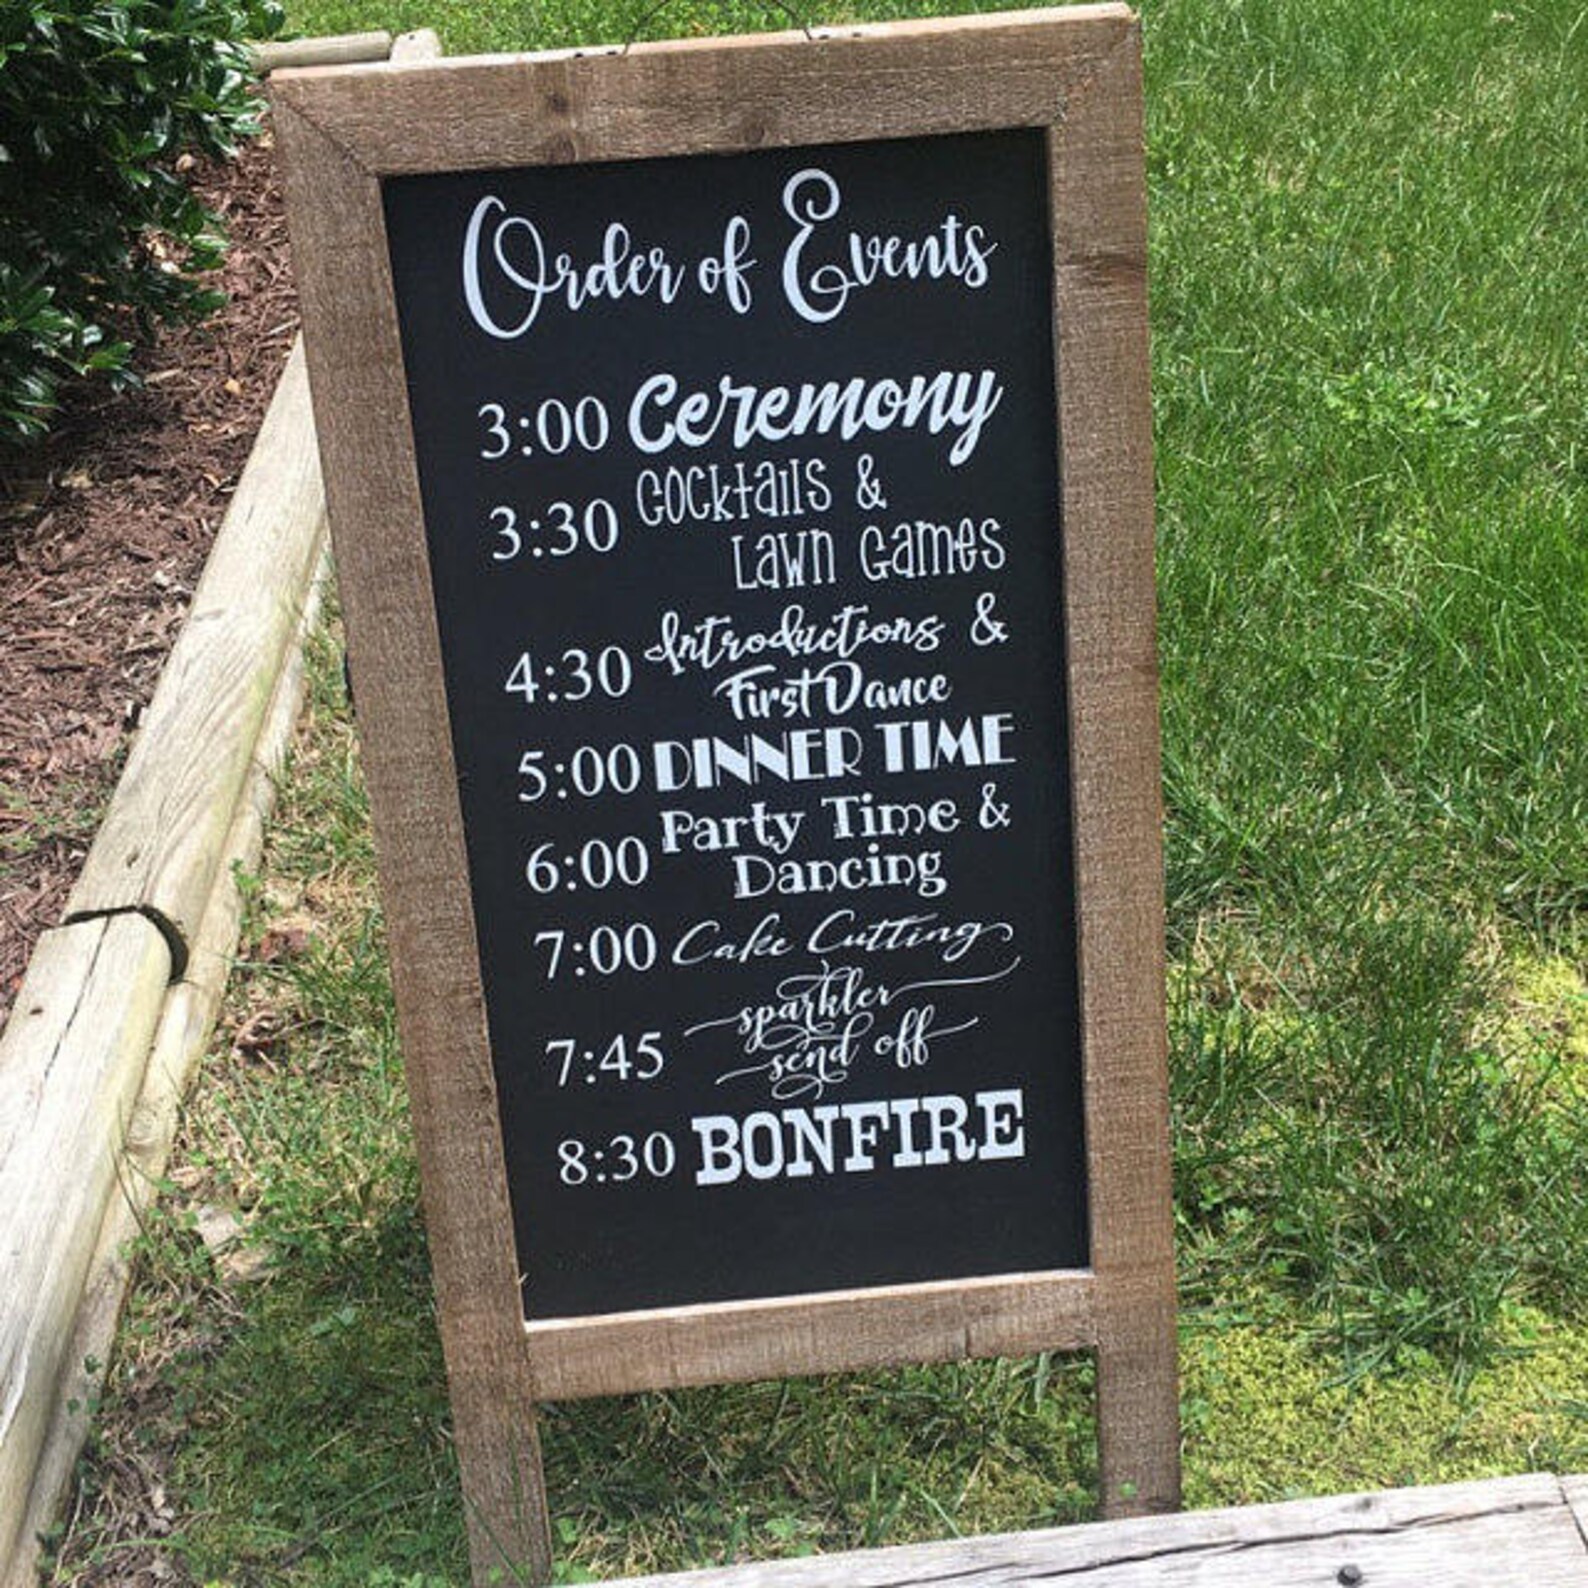 Order of Events
3:00 Ceremony
3:30 Cocktails &
Lawn Games
4:30 Introductions &
First Dance
5:00 DINNER TIME
6:00 Party Time &
Dancing
7:00 Cake Cutting
7:45 sparkler
send off
8:30 BONFIRE